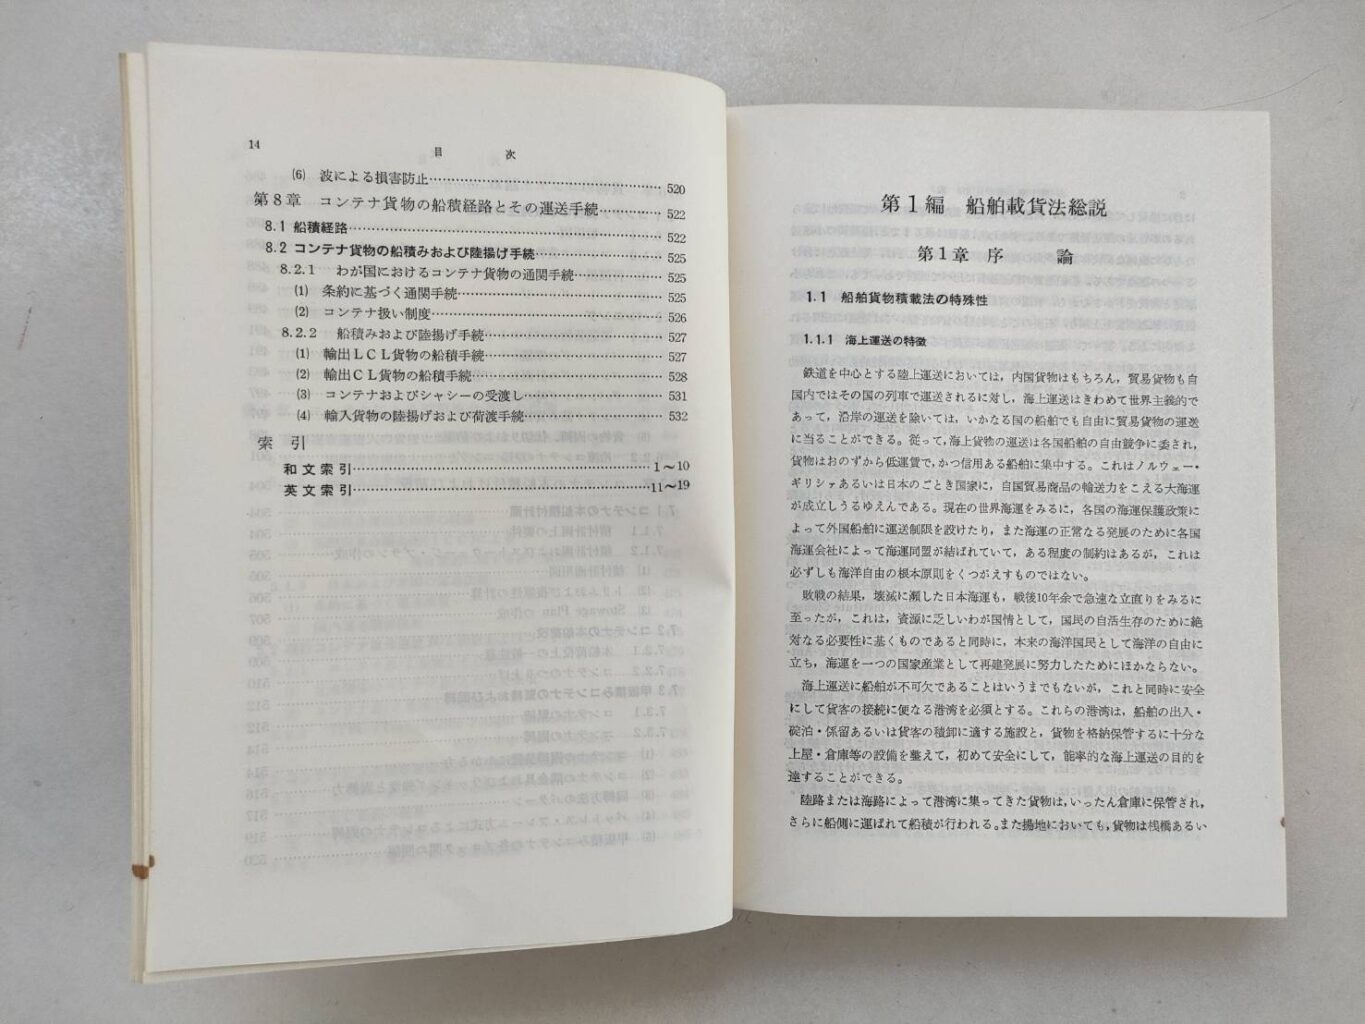 14
目 次
(6) 波による損害防止……………………………… 520
第8章 コンテナ貨物の船積経路とその運送手続………… 522
8.1 船積経路……………………………………………… 522
8.2 コンテナ貨物の船積みおよび陸揚げ手続……………… 525
8.2.1 わが国におけるコンテナ貨物の通関手続………… 525
(1) 条約に基づく通関手続……………………………… 525
(2) コンテナ扱い制度…………………………………… 526
8.2.2 船積みおよび陸揚げ手続………………………… 527
(1) 輸出LCL貨物の船積手続………………………… 527
(2) 輸出CL貨物の船積手続…………………………… 528
(3) コンテナおよびシャシーの受渡し………………… 531
(4) 輸入貨物の陸揚げおよび荷渡手続………………… 532
索 引
和文索引……………………………………………… 1〜10
英文索引……………………………………………… 11〜19
第1編 船舶載貨法総説
第1章 序 論
1.1 船舶貨物積載法の特殊性
1.1.1 海上運送の特徴
鉄道を中心とする陸上運送においては，内国貨物はもちろん，貿易貨物も自
国内ではその国の列車で運送されるに対し，海上運送はきわめて世界主義的で
あって，沿岸の運送を除いては，いかなる国の船舶でも自由に貿易貨物の運送
に当ることができる。従って，海上貨物の運送は各国船舶の自由競争に委され，
貨物はおのずから低運賃で，かつ信用ある船舶に集中する。これはノルウェー・
ギリシァあるいは日本のごとき国家に，自国貿易商品の輸送力をこえる大海運
が成立しうるゆえんである。現在の世界海運をみるに，各国の海運保護政策に
よって外国船舶に運送制限を設けたり，また海運の正常なる発展のために各国
海運会社によって海運同盟が結ばれていて，ある程度の制約はあるが，これは
必ずしも海洋自由の根本原則をくつがえすものではない。
敗戦の結果，壊滅に瀕した日本海運も，戦後10年余で急速な立直りをみるに
至ったが，これは，資源に乏しいわが国情として，国民の自活生存のために絶
対なる必要性に基くものであると同時に，本来の海洋国民として海洋の自由に
立ち，海運を一つの国家産業として再建発展に努力したためにほかならない。
海上運送に船舶が不可欠であることはいうまでもないが，これと同時に安全
にして貨客の接続に便なる港湾を必須とする。これらの港湾は，船舶の出入・
碇泊・係留あるいは貨客の積卸に適する施設と，貨物を格納保管するに十分な
上屋・倉庫等の設備を整えて，初めて安全にして，能率的な海上運送の目的を
達することができる。
陸路または海路によって港湾に集ってきた貨物は，いったん倉庫に保管され，
さらに船側に運ばれて船積が行われる。また揚地においても，貨物は桟橋あるい